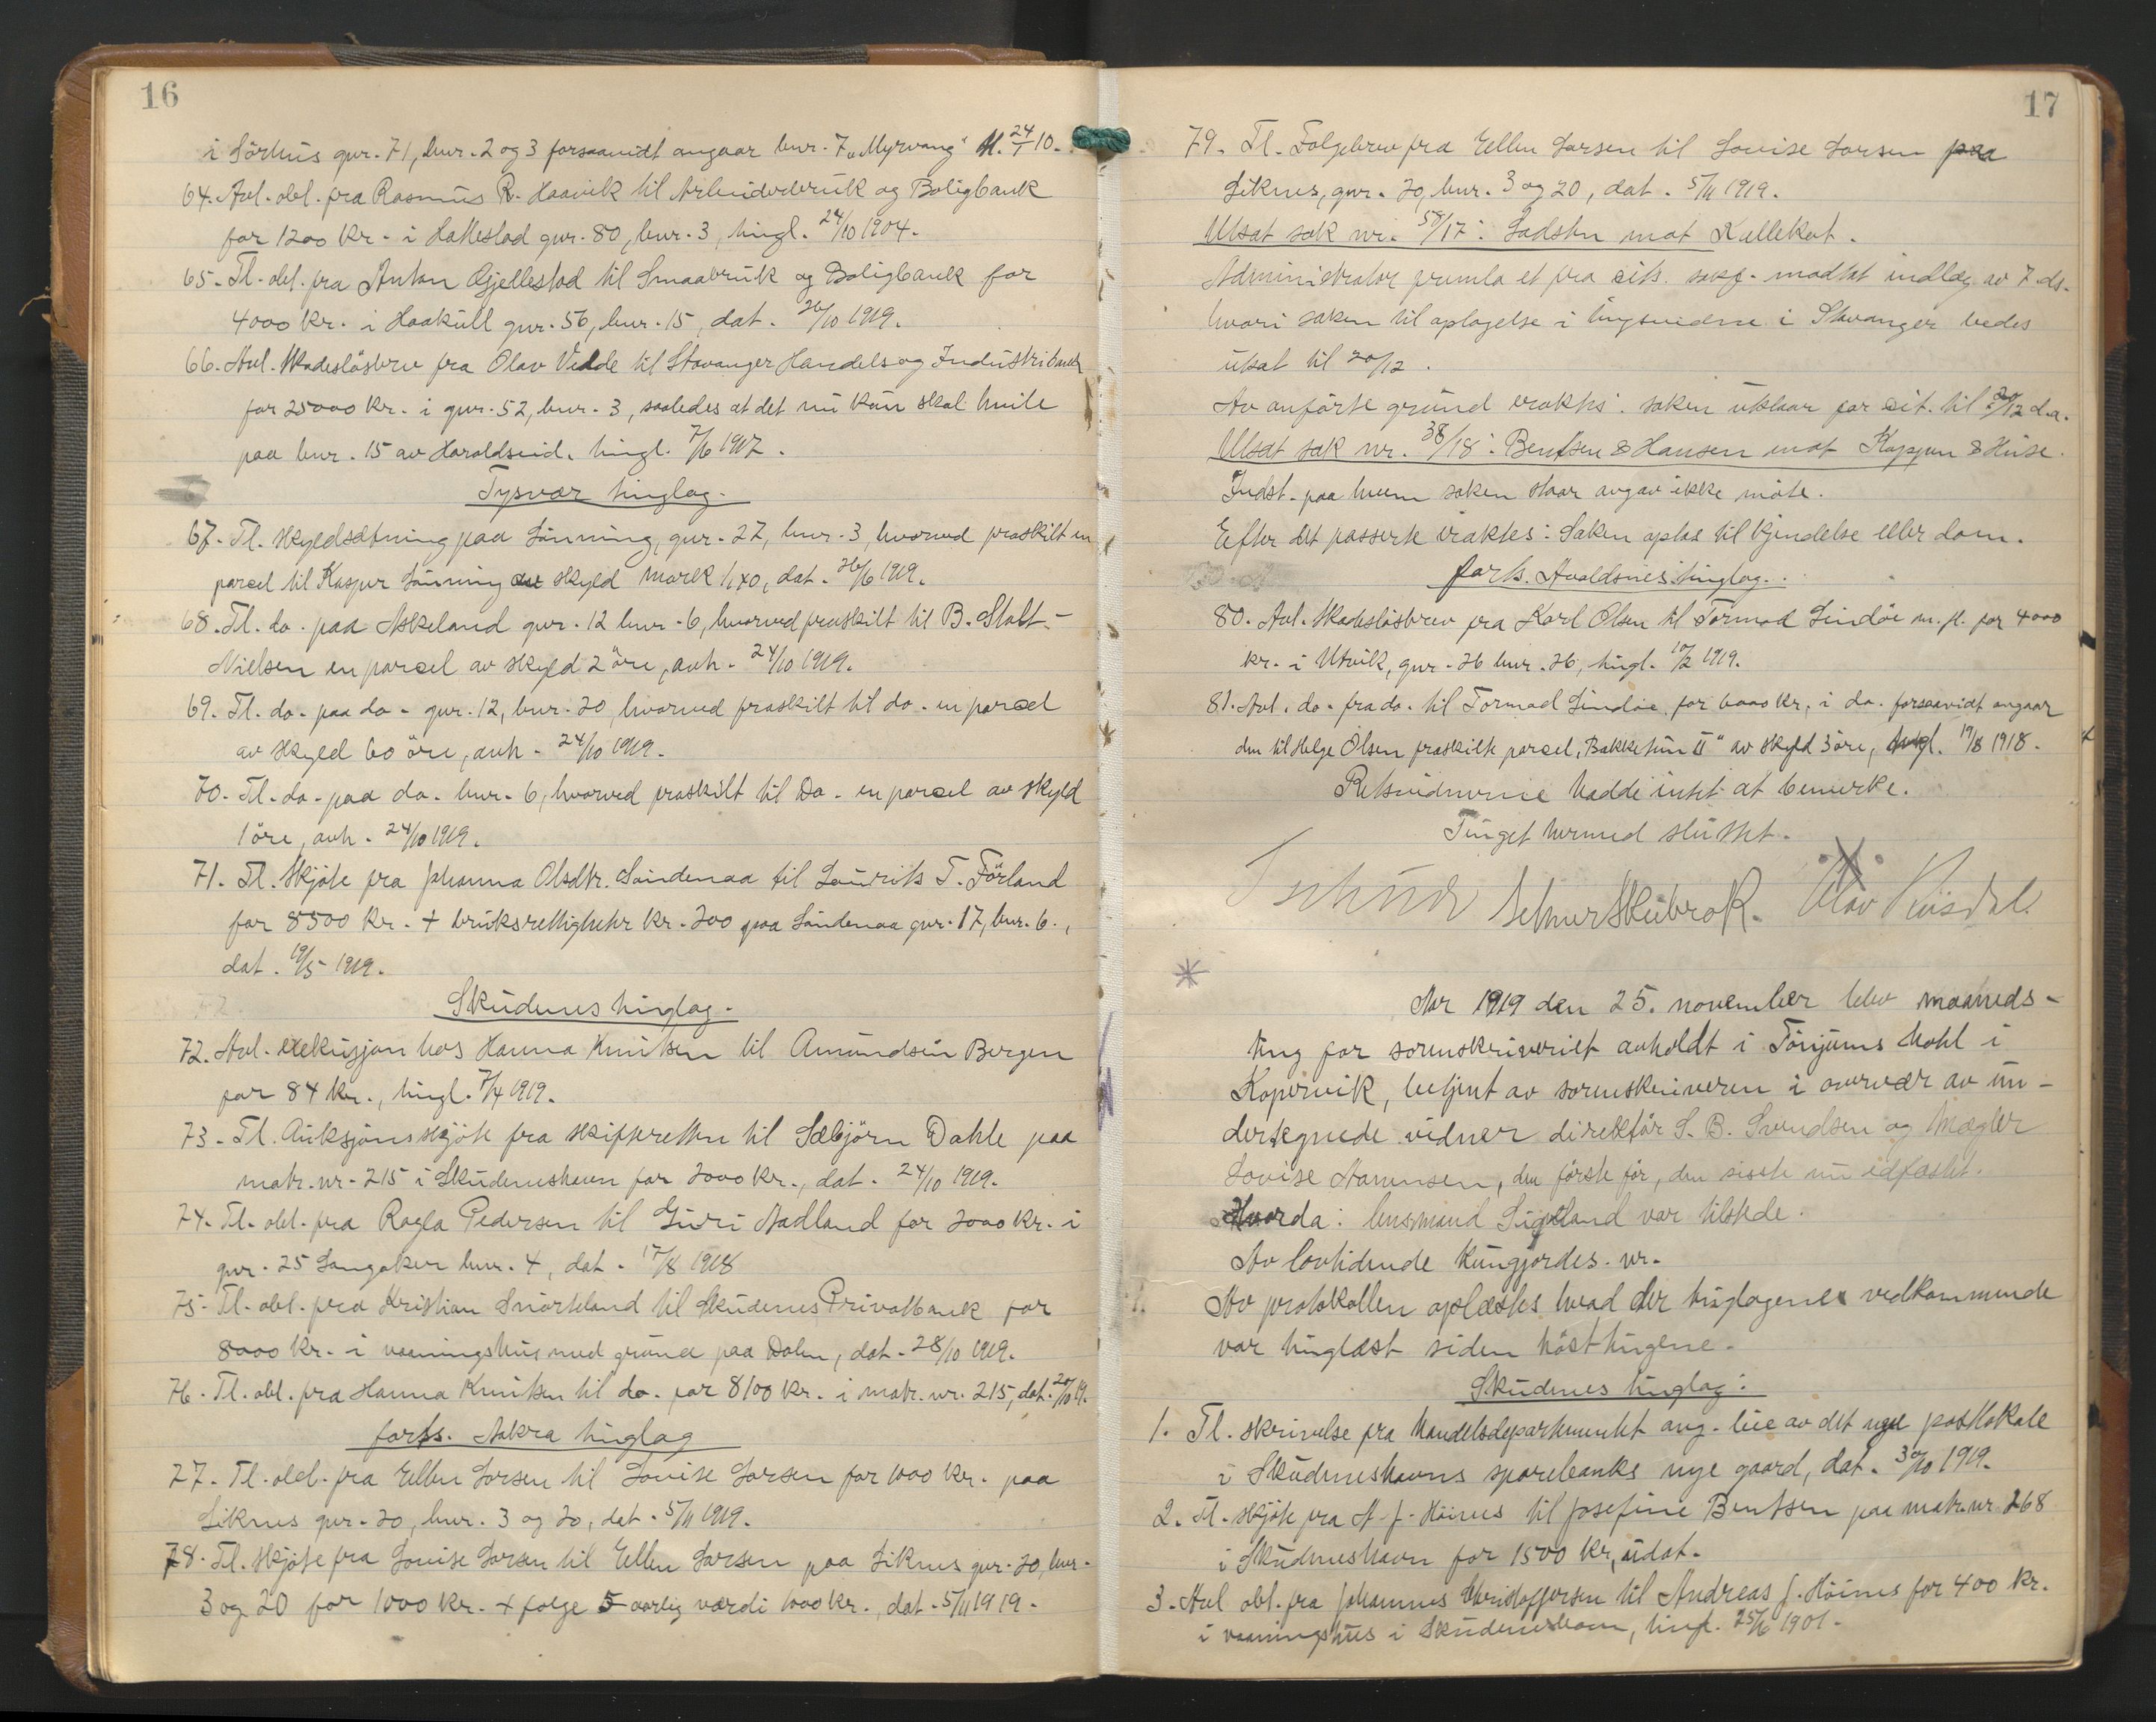 16
i Sörhus gnr. 71, bnr. 2 og 3 forsaavidt angaar bnr. 7 „Myrvang" 24/1 10.
64. Avl. obl. fra Rasmus R. Haavik til Arbeiderbruk og Boligbank
for 1200 kr. i Hattestad gnr. 80, bnr. 3, tingl. 24/10 1904.
65. Tl. obl. fra Anton Gjellestad til Smaabruk og Boligbank for
4000 kr. i Haakull gnr. 56, bnr. 15, dat. 20/10 1919.
66. Avl. skadesløsbrev fra Olav Vedde til Stavanger Handels og Industribank
for 25000 kr. i gnr. 52, bnr. 3, saaledes at det nu kun skal hvile
paa bnr. 15 av Haraldseid, tingl. 7/6 1917.
Tysvær tinglag.
67. Tl. skyldsætning paa Lönning, gnr. 27, bnr. 3, hvorved fraskilt en
parcel til Kasper Lönning av skyld mark 1,40, dat. 26/6 1919.
68. Tl. do. paa Askeland gnr. 12 bnr. 6, hvorved fraskilt til B. Stolt-
Nielsen en parcel av skyld 2 öre, avh. 24/10 1919.
69. Tl. do. paa do. gnr. 12, bnr. 20, hvorved fraskilt til do. en parcel
av skyld 60 öre, avh. 24/10 1919.
70. Tl. do. paa do. bnr. 6, hvorved fraskilt til Do. en parcel av skyld
1 öre, avh. 24/10 1919.
71. Tl. skjöte fra Johanna Olsdtr. Søndenaa til Laurits T. Förland
for 8500 kr. + bruksrettigheter kr. 200 paa Søndenaa gnr. 17, bnr. 6.,
dat. 19/5 1919.
Skudenes tinglag.
72. Avl. exekusjon hos Hanna Knutsen til Amundsen Bergen
for 84 kr., tingl. 7/4 1919.
73. Tl. Auksjonsskjöte fra skifteretten til Sæbjörn Dahle paa
matr. nr. 215 i Skudeneshavn for 2000 kr., dat. 24/10 1919.
74. Tl. obl. fra Ragla Pedersen til Guri Aadland for 2000 kr. i
gnr. 25 Langaker bnr. 4, dat. 17/8 1918
75. Tl. obl. fra Kristian Snörteland til Skudenes Privatbank for
8000 kr. i vaaningshus med grund paa Dalen, dat. 28/10 1919.
76. Tl. obl. fra Hanna Knutsen til do. for 8100 kr. i matr. nr. 215, dat. 20/10 19.
forts. Aakra tinglag
77. Tl. obl. fra Ellen Larsen til Lovise Larsen for 1000 kr. paa
Liknes gnr. 20, bnr. 3 og 20, dat. 5/11 1919.
78. Tl. skjöte fra Lovise Larsen til Ellen Larsen paa Liknes gnr. 20, bnr.
3 og 20 for 1000 kr. + folge 5 aarlig værdi 1000 kr., dat. 5/11 1919.
17
79. Tl. Folgebrev fra Ellen Larsen til Lovise Larsen paa
Liknes, gnr. 20, bnr. 3 og 20, dat. 5/11 1919.
Utsat sak nr. 58/17: Ladsten mot Kallekot.
Administrator fremla et fra cits. sakf. modtat indlæg av 7 ds.
hvori saken til optagelse i tingvidne i Stavanger bedes
utsat til 20/12.
Av anförte grund eraktes: saken utstaar for cit. til 20/12 d.a.
Utsat sak nr. 38/18: Bentsen & Hansen mot Koppen & Huse.
Indst. paa hvem saken staar avgav ikke møte.
Efter det passerte eraktes: Saken optas til kjendelse eller dom.
forts. Avaldsnes tinglag.
80. Avl. skadesløsbrev fra Karl Olsen til Tormod Lindöe m. fl. for 4000
kr. i Utvik, gnr. 26 bnr. 26, tingl. 10/2 1919.
81. Avl. do. fra do. til Tormod Lindöe for 6000 kr. i do. forsaavidt angaar
den til Helge Olsen fraskilte parcel, „Bakketun II" av skyld 3 öre, tingl. 19/8 1918.
Retsvidnerne hadde intet at bemerke.
Tinget hermed sluttet.
Olav
Aar 1919 den 25. november blev maaneds-
ting for sorenskriveriet avholdt i Tönjums Hotel i
Kopervik, betjent av sorenskriveren i overvær av un-
dertegnede vidner direktör S. B. Svendsen og Mægler
Lovise Hammsen, den förste för, den sisste nu edfæstet.
Hvorda: lensmand Sigeland var tilstede.
Av lovtidende kungjordes. nr.
Av protokollen oplæstes hvad der tinglagenes vedkommende
var tinglæst siden hösttingene.
Skudenes tinglag:
1. Tl. skrivelse fra Handelsdepartementet ang. leie av det nye postlokale
i Skudeneshavns sparebanks nye gaard, dat. 30/10 1919.
2. Tl. skjöte fra A. J. Höines til Josefine Bentsen paa matr. nr. 268
i Skudeneshavn for 1500 kr, udat.
3. Avl obl. fra Johannes Christoffersen til Andreas J. Höines for 400 kr.
i vaaningshus i Skudeneshavn, tingl. 25/6 1901.